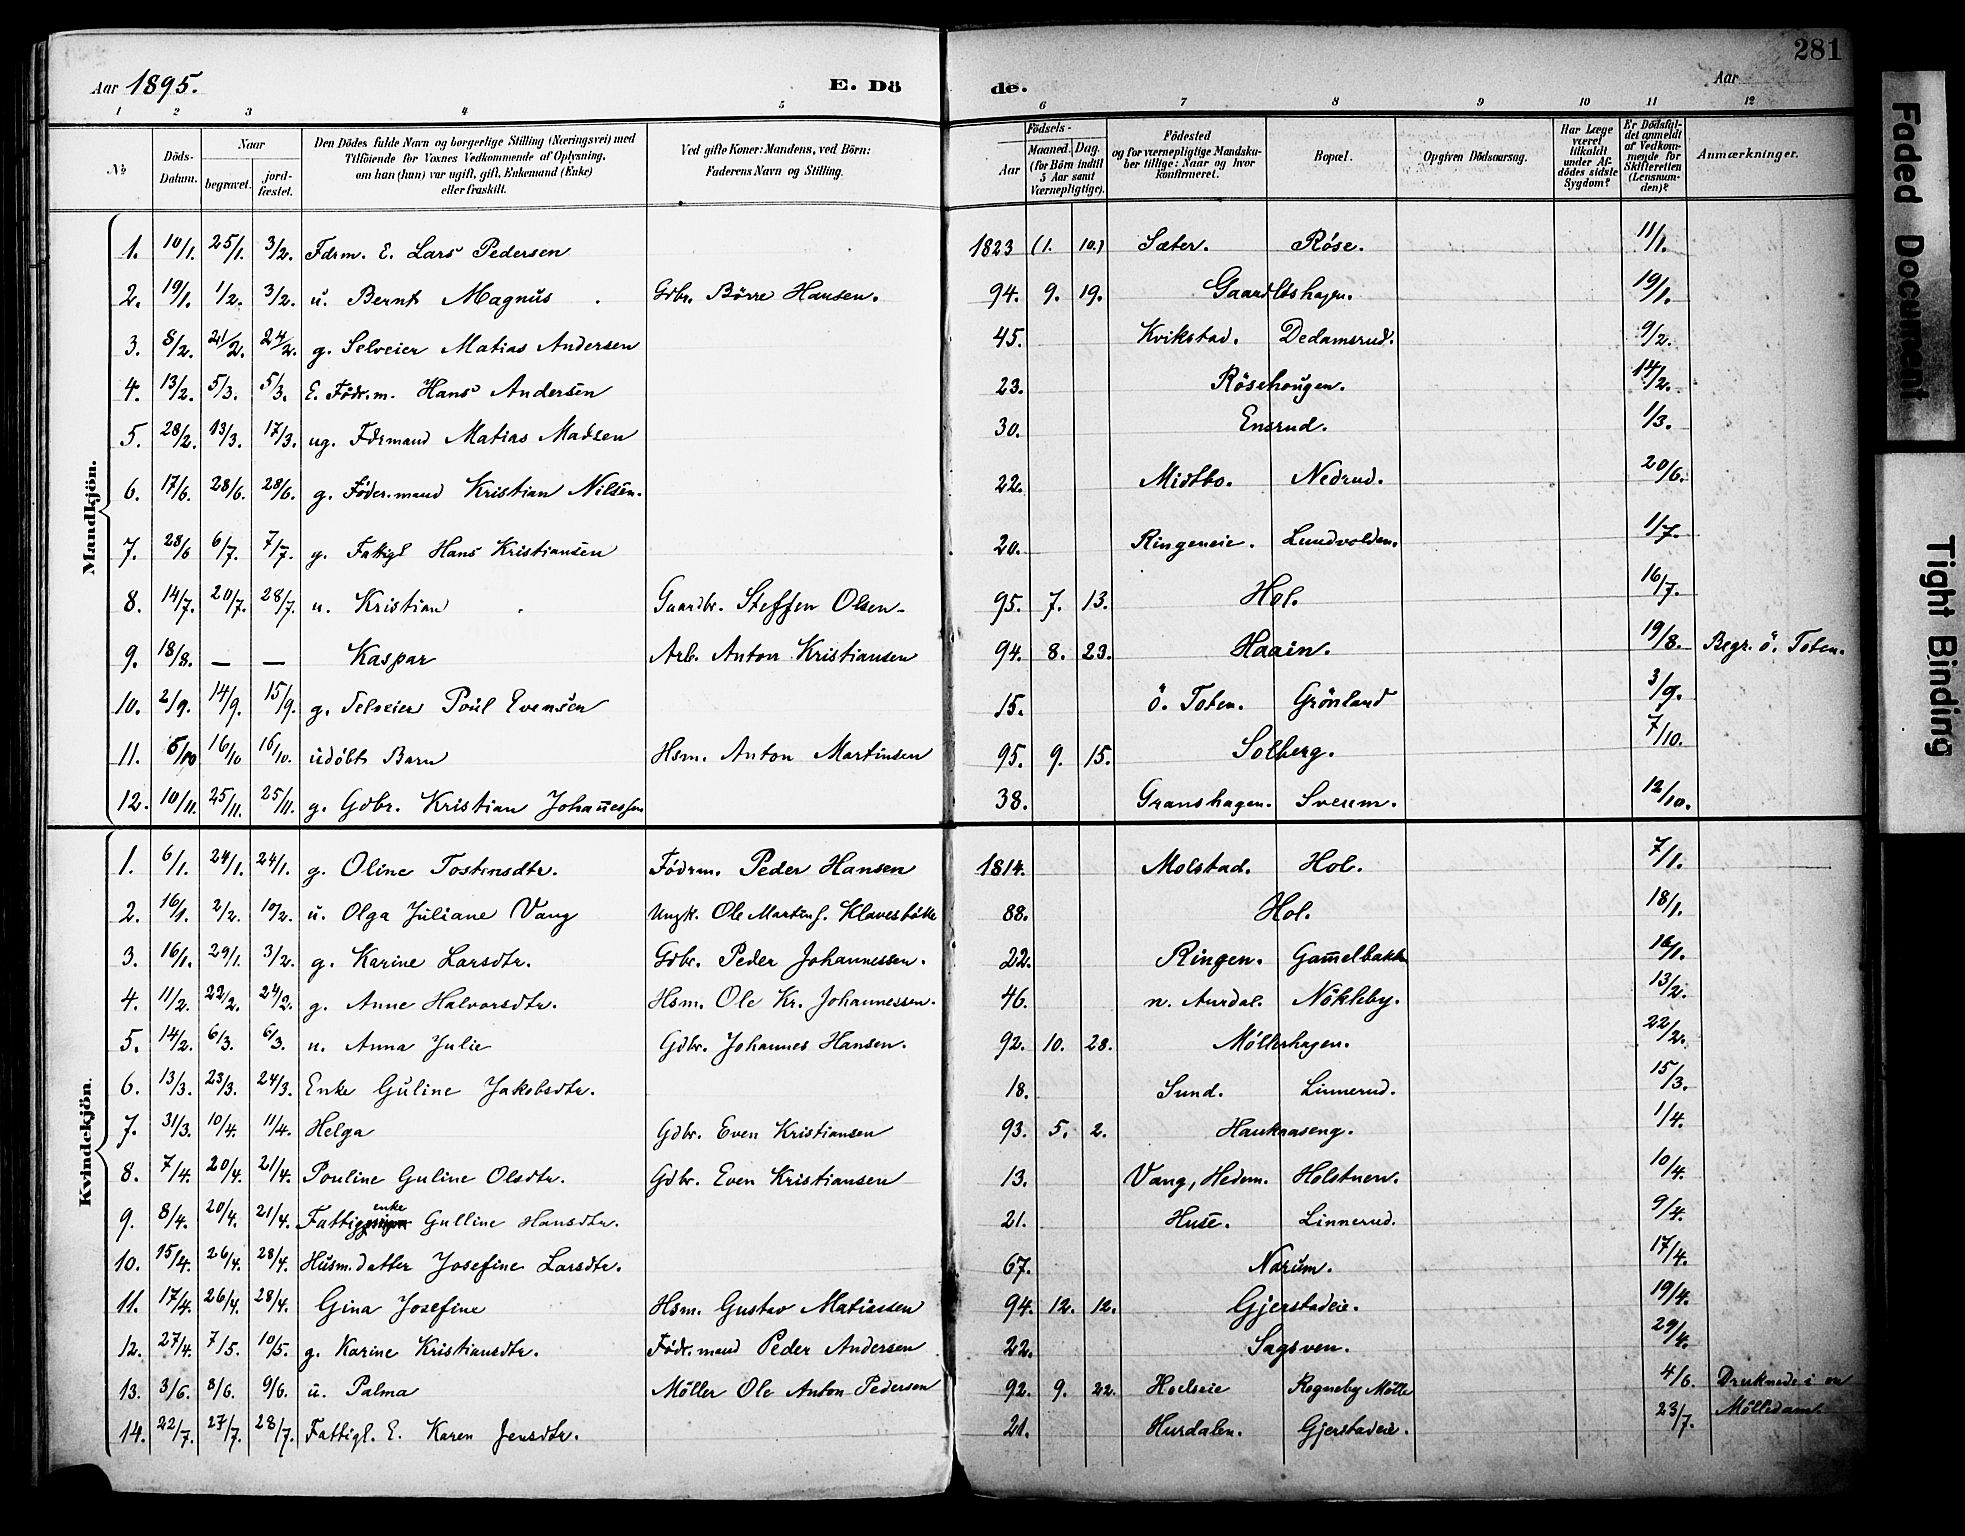 281
Aar 1895. E. Dö de. Aar
1 2 3 4 5 6 7 8 9 10 11 12
No Döds-Datum. Naar begravet. jord-fæstet. Den Dödes fulde Navn og borgerlige Stilling (Næringsvei) med Tilföiende for Voxnes Vedkommende af Oplysning, om han (hun) var ugift, gift, Enkemand (Enke) eller fraskilt. Ved gifte Koner: Mandens, ved Börn: Faderens Navn og Stilling. Födsels- Aar Maaned. Dag. (for Börn indtil 5 Aar samt Værnepligtige). Födested og for værnepligtige Mandskaber tillige: Naar og hvor konfirmeret. Bopæl. Opgiven Dödsaarsag. Har Læge været tilkaldt under Afdödes sidste Sygdom? Er Dödsfaldet anmeldt af Vedkommende for Skifteretten (Lensmanden)? Anmærkninger.
Mandkjön.
1. 10/1. 25/1. 3/2. Fdrm. E. Lars Pedersen 1823 (1. 10.) Sæter. Röse. 11/1.
2. 19/1. 1/2. 3/2. u. Bernt Magnus Gdbr. Börre Hansen. 94. 9. 19. Gaardløshagen. 19/1.
3. 8/2. 21/2. 24/2. g. Selveier Matias Andersen 45. Kvikstad. Dedamsrud. 9/2.
4. 13/2. 5/3. 5/3. E. Födr.m. Hans Andersen 23. Rösehougen. 14/2.
5. 28/2. 13/3. 17/3. ug. Fdrmand Matias Madsen 30. Ensrud. 1/3.
6. 17/6. 28/6. 28/6. g. Föder.mand Kristian Nilsen. 22. Midtbo. Nedrud. 20/6.
7. 28/6 6/7. 7/7. g. Fattigl Hans Kristiansen 20. Ringeneie. Lundvolden. 1/7.
8. 14/7. 20/7. 28/7. u. Kristian Gaardbr. Steffen Olsen 95. 7. 13. Hol. 16/7.
9. 18/8. — — Kaspar Arb. Anton Kristiansen 94. 8. 23. Haajen. 19/8. Begr. ö. Toten.
10. 2/9. 14/9. 15/9. g. Selveier Poul Evensen 15. ö. Toten. Grönland 3/9.
11. 5/10 16/10 16/10. udöbt Barn Hsm. Anton Martinsen 95. 9. 15. Solberg. 7/10.
12. 10/11. 25/11. 25/11. g. Gdbr. Kristian Johannessen 38. Granshagen. Sverm. 12/10.
Kvindekjön.
1. 6/1. 24/1. 24/1. g. Oline Tostensdtr. Födrm. Peder Hansen 1814. Molstad. Hol. 7/1.
2. 16/1. 2/2. 10/2. u. Olga Juliane Vang Ungk. Ole Martins. Klavesbakke 88. Hol. 18/1.
3. 16/1. 29/1. 3/2. g. Karine Larsdtr. Gdbr. Peder Johannessen. 22. Ringen. Gammelbakken 16/1.
4. 11/2. 22/2. 24/2. g. Anne Halvorsdtr. Hsm. Ole Kr. Johannessen. 46. n. Aurdal. Nökleby. 13/2.
5. 14/2. 6/3. 6/3. u. Anna Julie Gdbr. Johannes Hansen. 92. 10. 28. Möllerhagen. 22/2.
6. 13/3. 23/3. 24/3. Enke Guline Jakobsdtr. 18. Sund. Linnerud. 15/3.
7. 31/3. 10/4. 11/4. Helga Gdbr. Even Kristiansen 93. 5. 2. Haukaaseng. 1/4.
8. 7/4. 20/4. 21/4. Pouline Guline Olsdtr. Gdbr. Even Kristiansen 13. Vang, Hedem. Holstuen. 10/4.
9. 8/4. 20/4. 21/4. Fattigenke Gulline Hansdtr. 21. Huse. Linnerud. 9/4.
10. 15/4. 26/4. 28/4. Husm.datter Josefine Larsdtr. 67. Narum. 17/4.
11. 17/4. 26/4. 28/4. Gina Josefine Hsm. Gustav Matiassen 94. 12. 12. Gjerstadeie. 19/4.
12. 27/4. 7/5. 10/5. g. Karine Kristiansdtr. Födr.mand Peder Andersen 22. Sagsven. 29/4.
13. 3/6. 8/6. 9/6. u. Palma Möller Ole Anton Pedersen 92. 9. 22. Hoelseie Rogneby Mölle 4/6. Druknede i en Mölledam.
14. 22/7. 27/7. 28/7. Fattigl. E. Karen Jensdtr. 21. Hurdalen. Gjerstadeie. 23/7.
Faded Document
Tight Binding